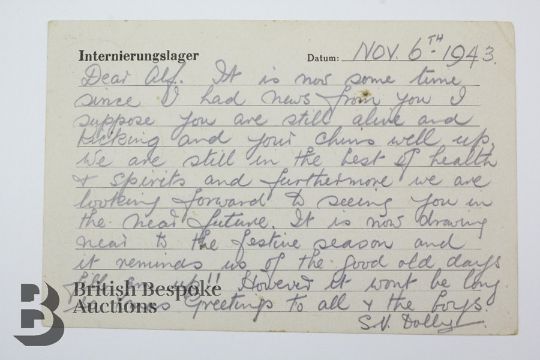 Internierungslager Datum: NOV. 6TH 1943.
Dear Alf. It is now some time
since I had news from you I
suppose you are still alive and
kicking and your chins well up,
We are still in the best of health
& spirits and furthermore we are
looking forward to seeing you in
the near future. It is now drawing
near to the festive season and
it reminds us of the good old days
up!! However it wont be long
Greetings to all & the boys.
S.V. Dolly
British Bespoke
Auctions